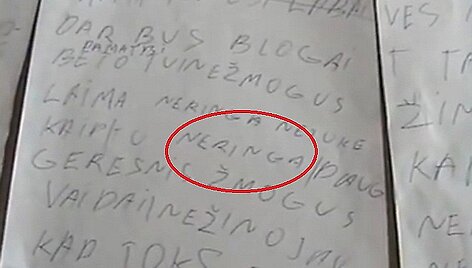 DAR BUS BLOGAI
PAMATYSI
BE TO TU NEŽMOGUS
LAIMA NERINGA NEJUKE
KAIP TU NERINGA DAUG
GERESNIS ŽMOGUS
VAIDAI NEŽINOJAU
KAD TOKS
VES
T
ŽIN
KA
NE